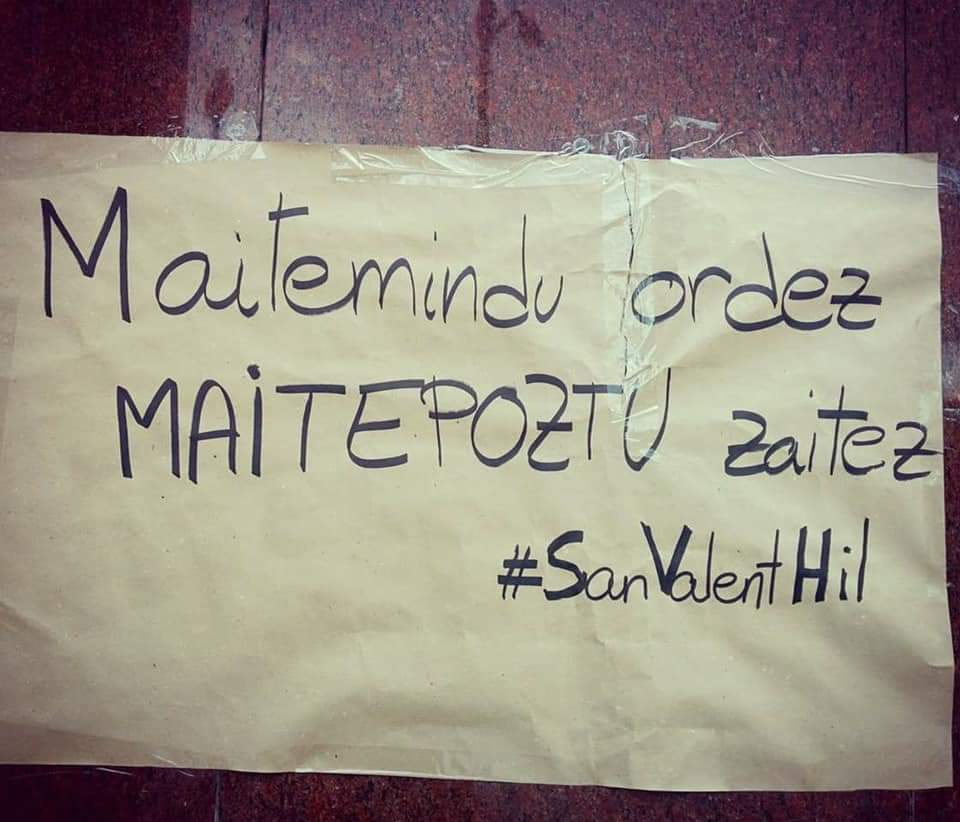 Maitemindu ordez
MAiTEPOZTU zaitez
#SanValentHil